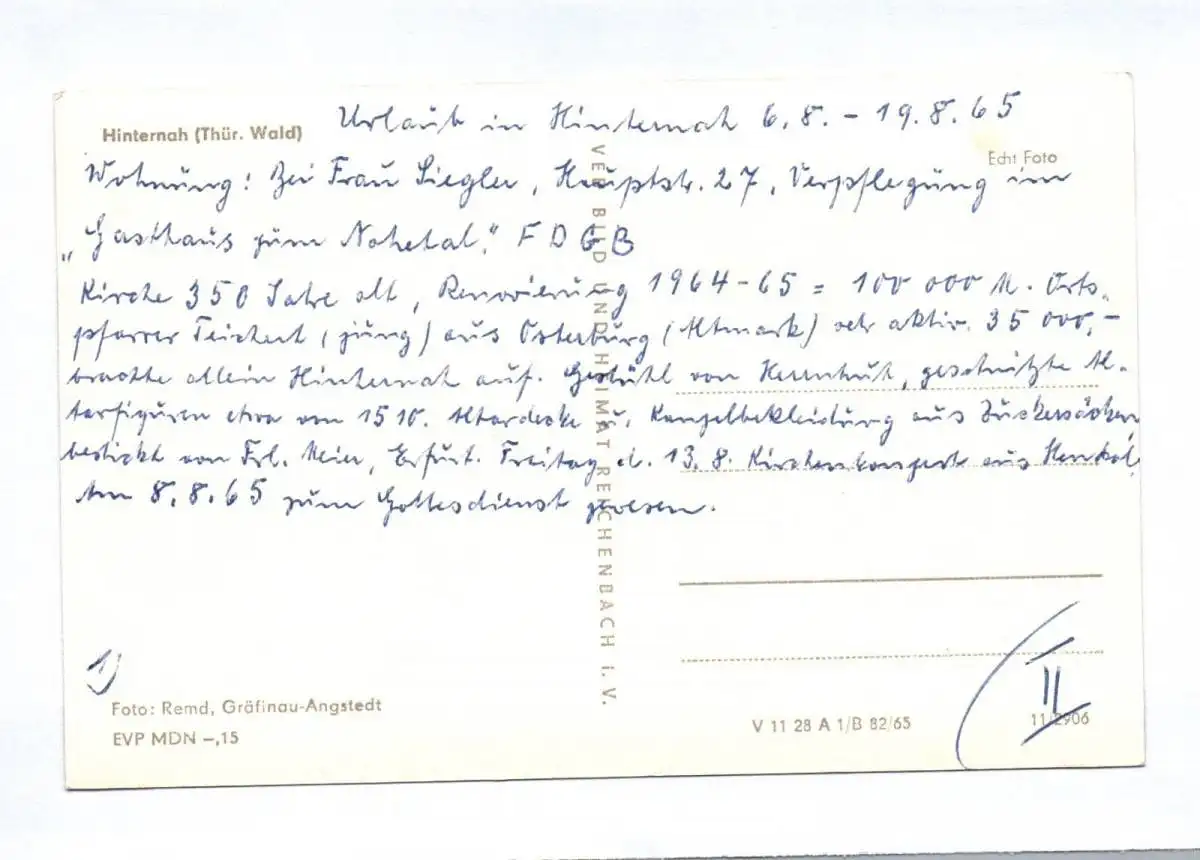 Hinternah (Thür. Wald)
Urlaub in Hinternah 6.8. - 19.8.65
Echt Foto
Wohnung: Bei Frau Siegler, Hauptstr. 27, Verpflegung im
„Gasthaus zum Nahetal." FDGB
Kirche 350 Jahre alt, Renovierung 1964-65 = 100 000 M. Orts-
pfarrer Teichert (jung) aus Osterburg (Altmark) sehr aktiv. 35 000,-
brachte allein Hinternah auf. Gestühl von Herrnhut, geschnitzte Al-
tarfiguren etwa von 1510. Altardecke u. Kanzelbekleidung aus Zuckersäcken
bestickt von Frl. Meier, Erfurt. Freitag d. 13.8. Kirchenkonzert aus
Am 8.8.65 zum Gottesdienst gewesen.
VEB BILD UND HEIMAT REICHENBACH I. V.
1)
II
Foto: Remd, Gräfinau-Angstedt
EVP MDN -,15
V 11 28 A 1/B 82/65
11/2906